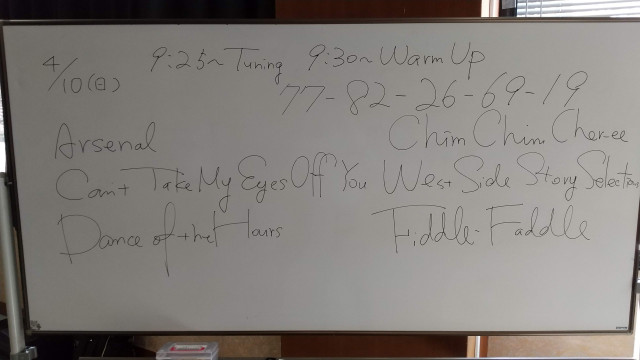 4/10(日) 9:25~ Tuning 9:30~ Warm Up
77-82-26-69-19
Arsenal
Chim Chim Cher-ee
Can't Take My Eyes Off You
West Side Story Selection
Dance of the Hours
Fiddle-Faddle